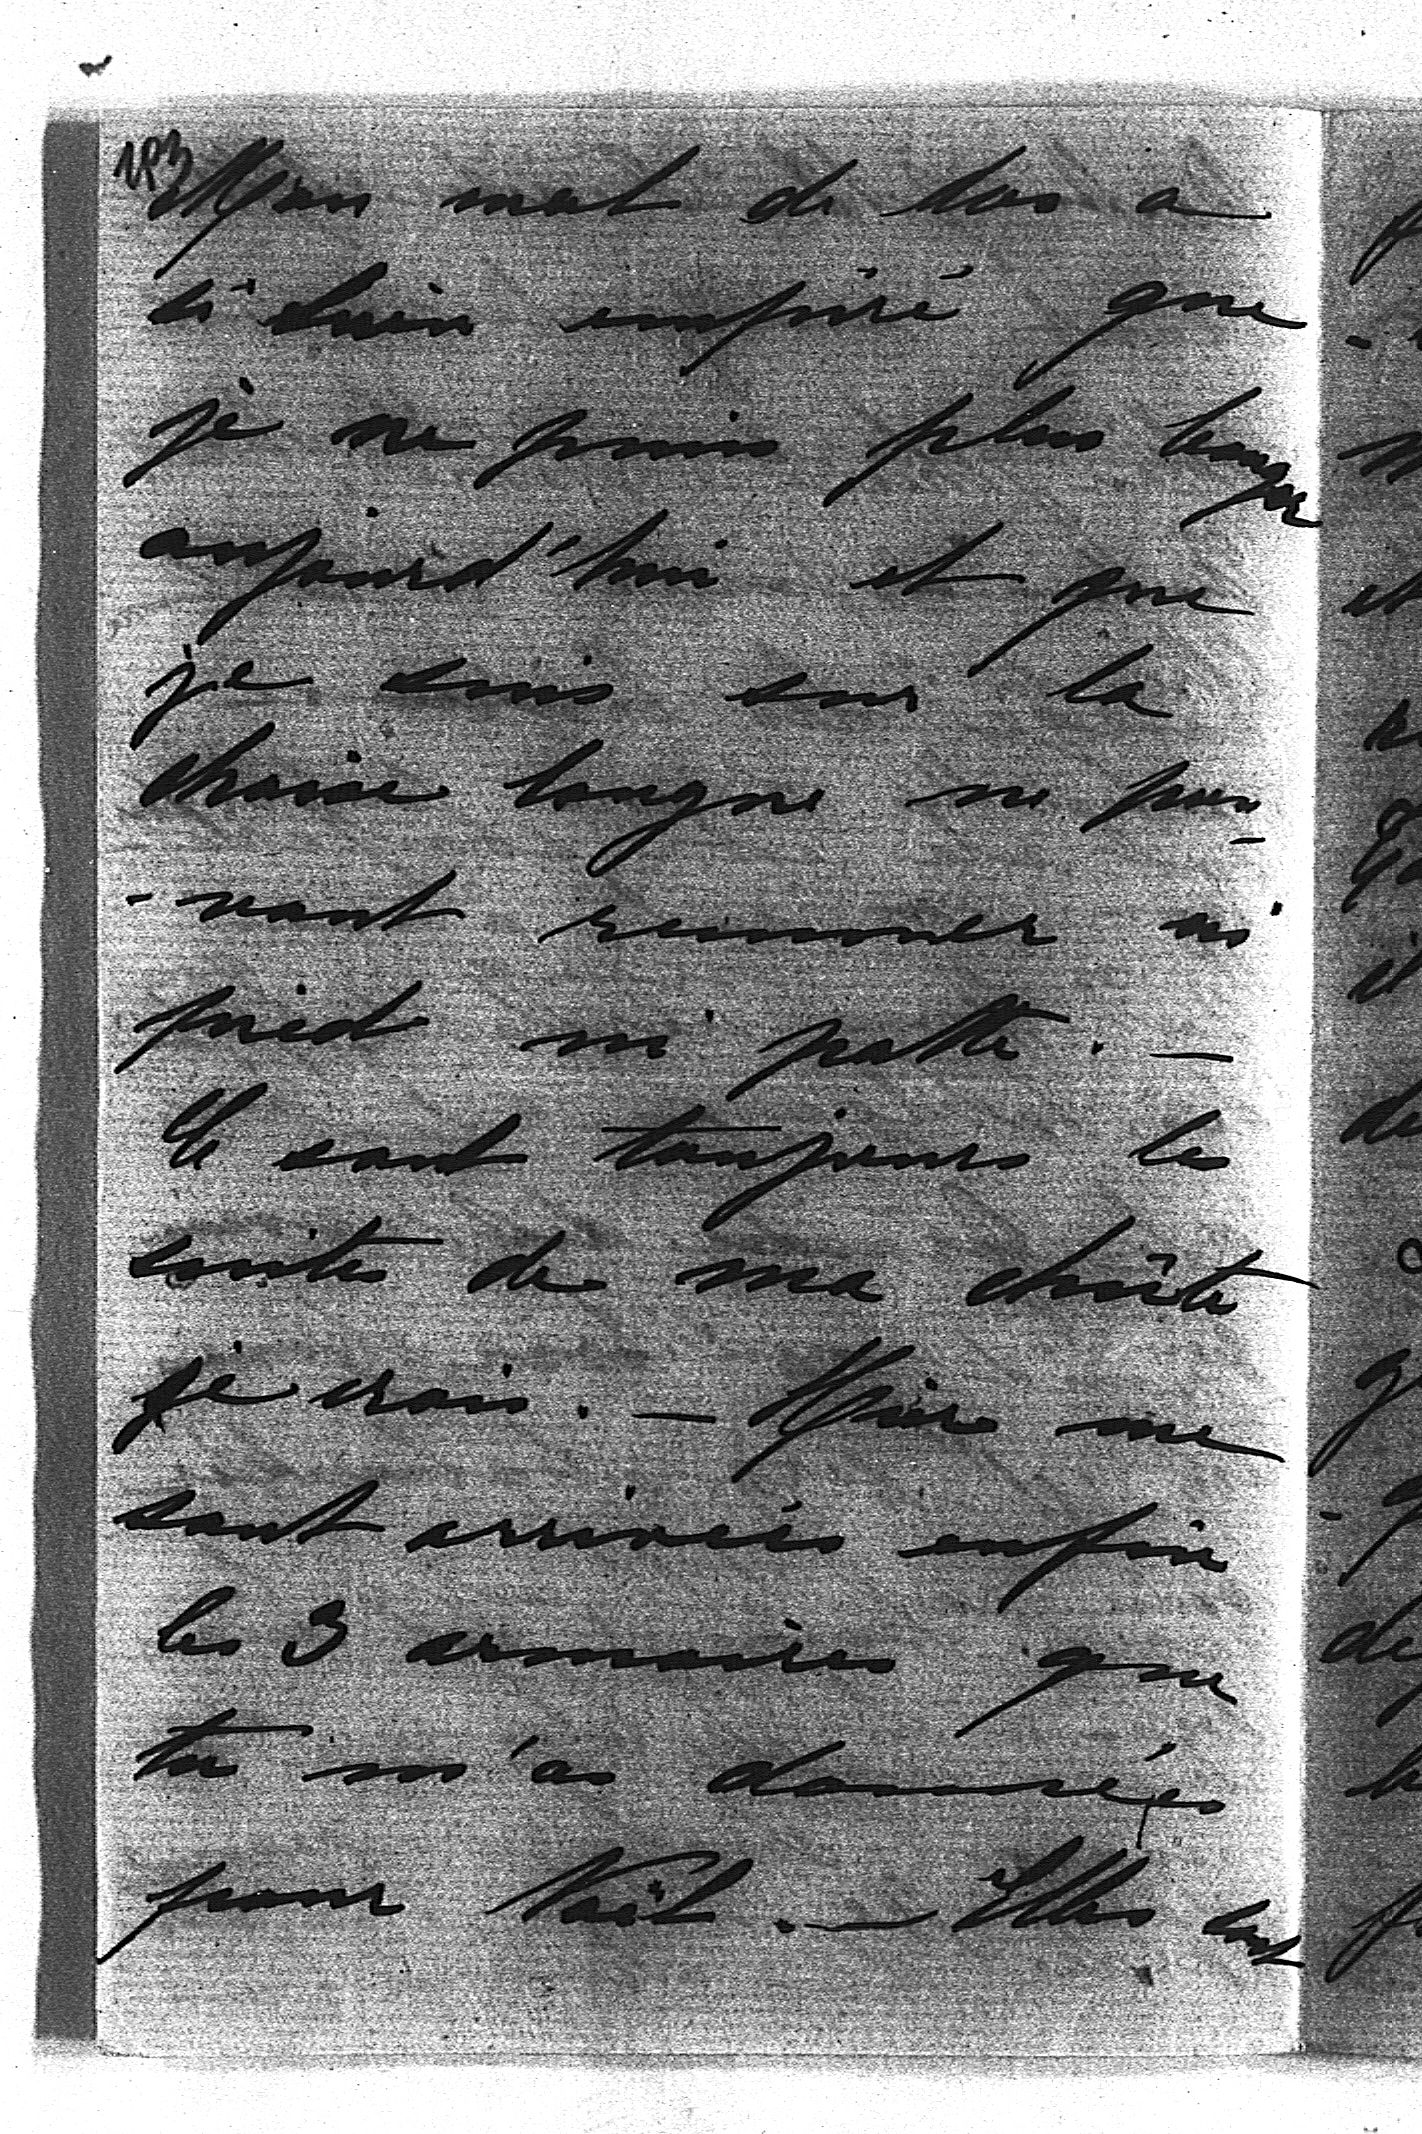 Mon mal de dos a
si bien empiré que
je ne puis plus bouger
aujourd'hui et que
je suis sur la
chaise longue ne pou-
-vant remuer ni
pied ni patte. —
Ce sont toujours les
suites de ma chûte
je crois. — Hier me
sont arrivées enfin
les 3 armoires que
tu m'as données
pour Noël. — Elles sont